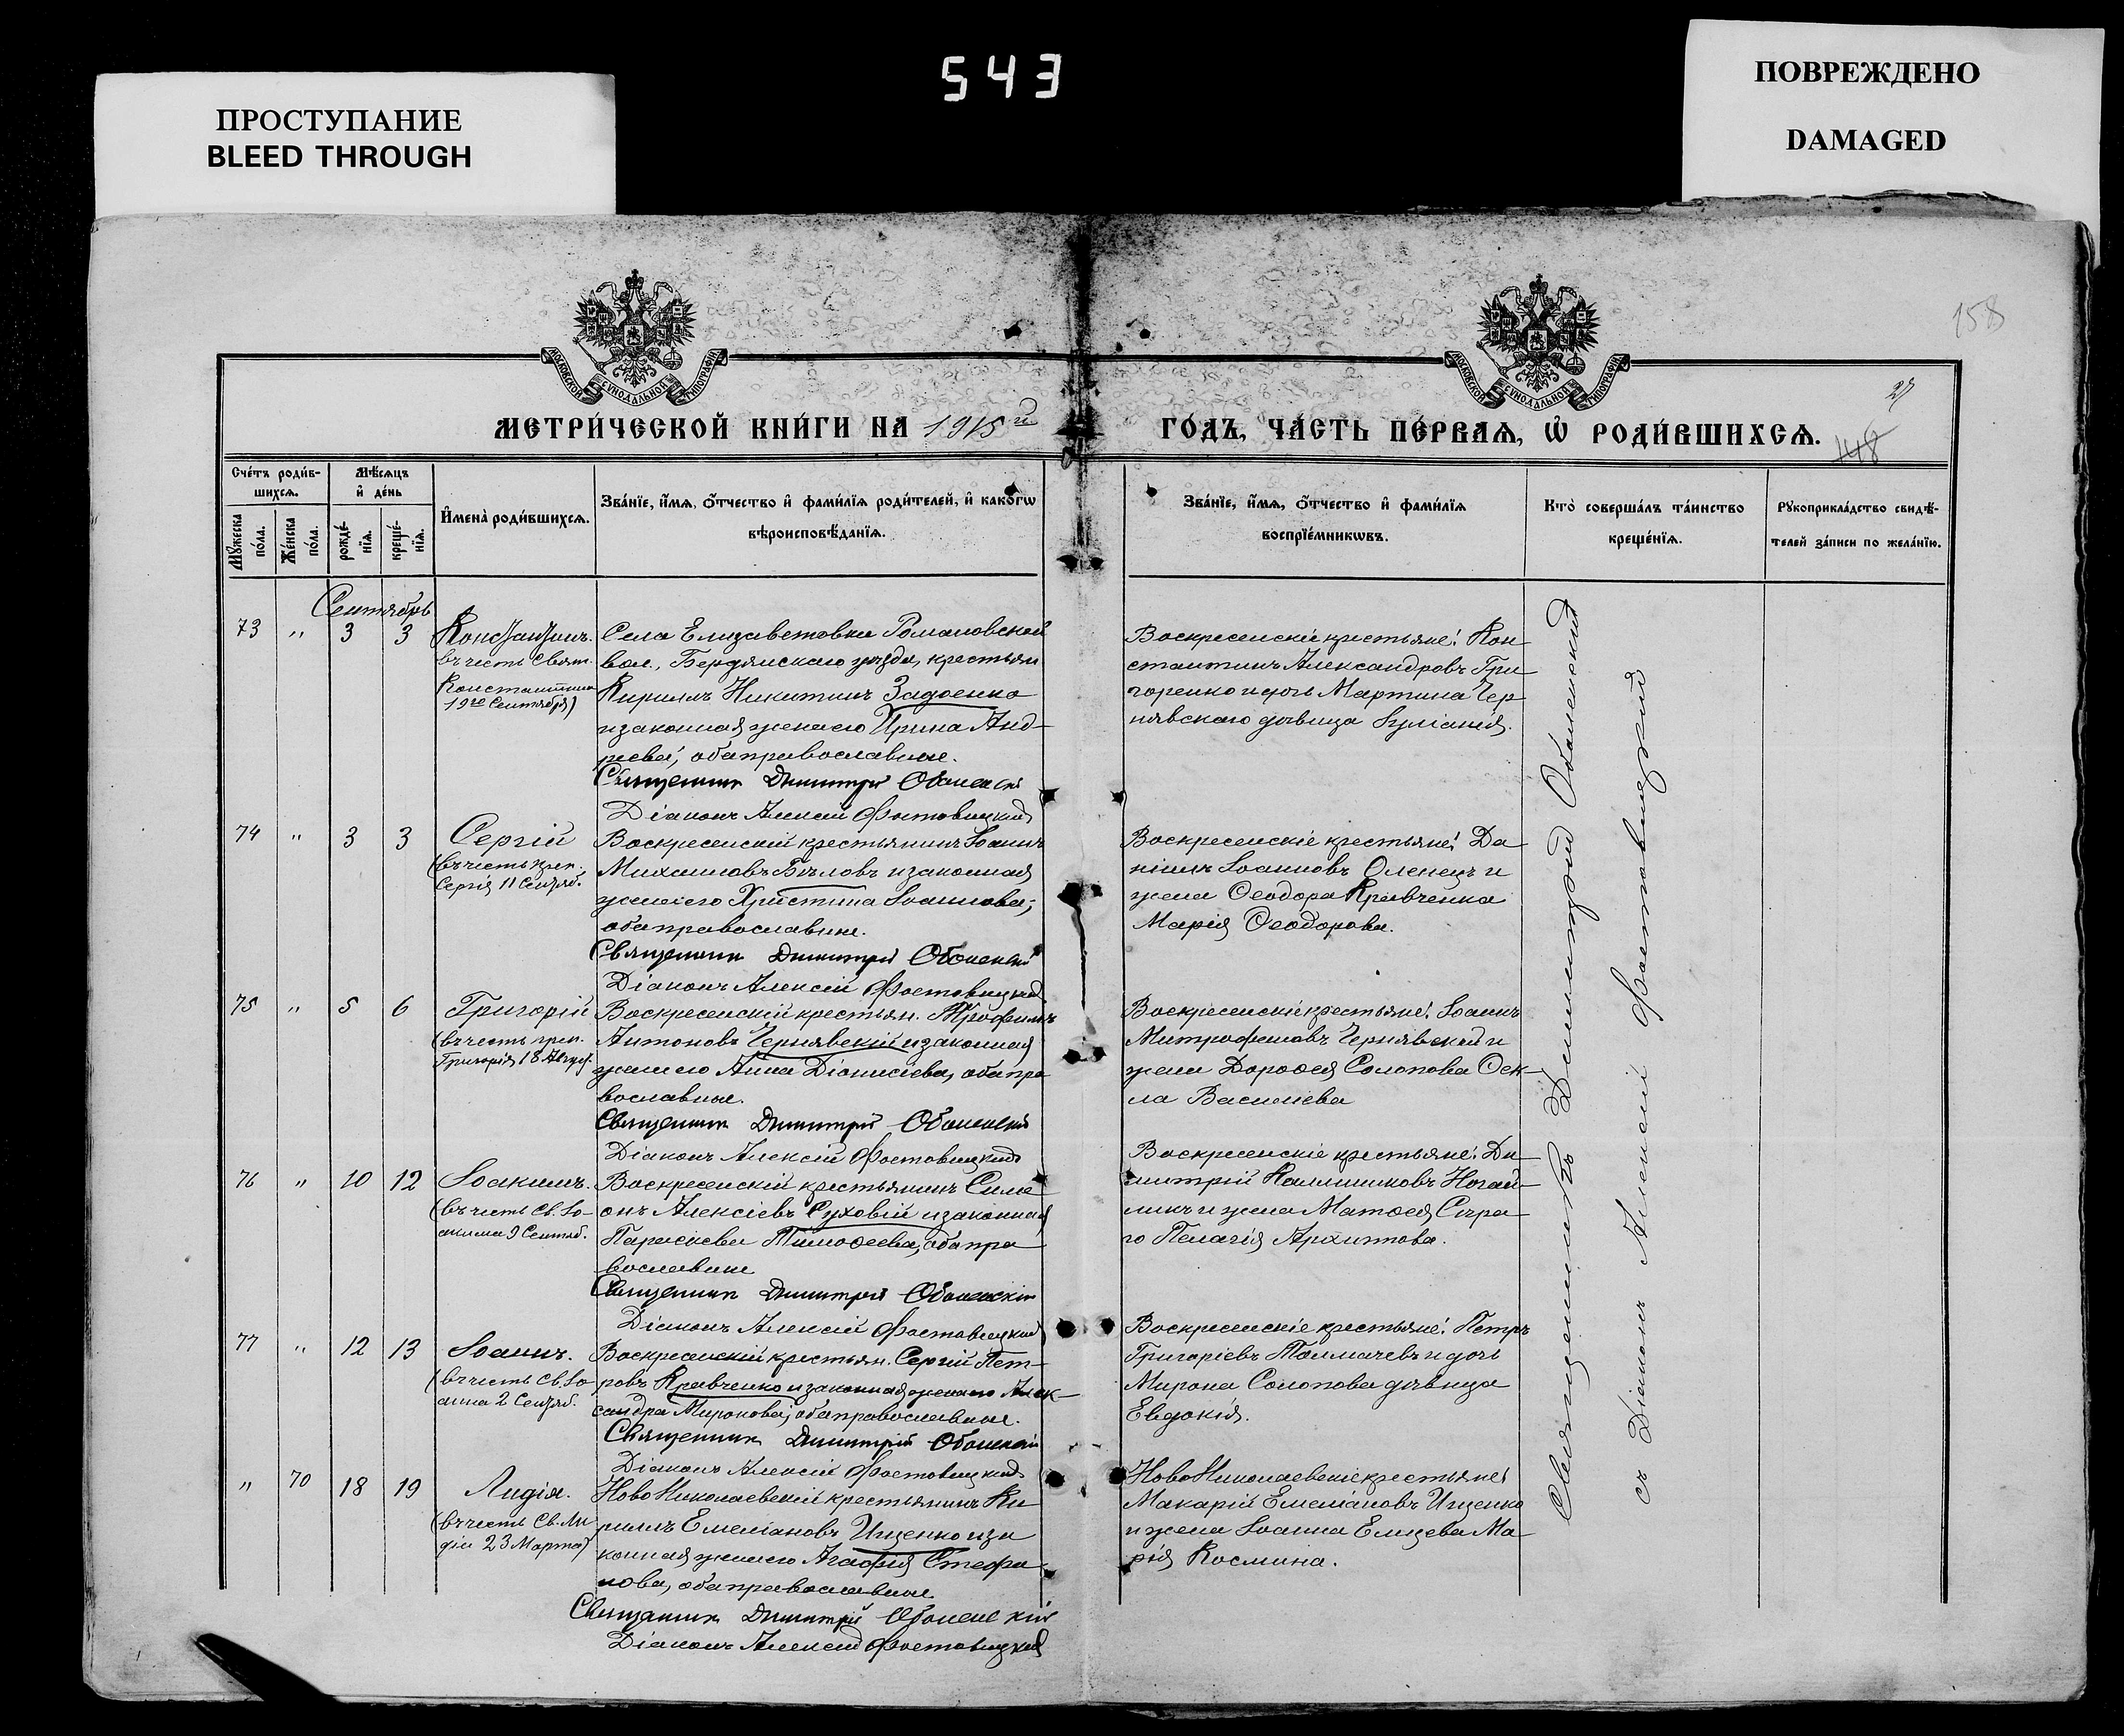 543
ПРОСТУПАНИЕ
BLEED THROUGH
ПОВРЕЖДЕНО
DAMAGED
158
27
148
МОСКОВСКОЙ СУНОДАЛЬНОЙ ТИПОГРАФІИ
МОСКОВСКОЙ СУНОДАЛЬНОЙ ТИПОГРАФІИ
МЕТРИ́ЧЕСКОЙ КНИ́ГИ НА 1915й
ГО́ДЪ, ЧА́СТЬ ПЕ́РВАѦ, Ѡ҆ РОДИ́ВШИХСѦ.
Сче́тъ роди́в-
шихсѧ.
Мꙋ́жеска
по́ла.
Же́нска
по́ла.
Мѣ́сѧцъ
и҆ де́нь
рожде́-
нїѧ.
креще́-
нїѧ.
И҆мена̀ роди́вшихсѧ.
Зва́нїе, и҆́мѧ, ѻ҆́тчество и҆ фами́лїѧ роди́телей, и҆ како́гѡ
вѣроисповѣ́данїѧ.
Зва́нїе, и҆́мѧ, ѻ҆́тчество и҆ фами́лїѧ
воспрїе́мникѡвъ.
Кто̀ соверша́лъ та́инство
креще́нїѧ.
Рꙋкоприкла́дство свидѣ́-
телей за́писи по жела́нїю.
Сентябрь
73 " 3 3 Константинъ.
въ честь Свят.
Константина
19го Сентября)
Села Елизаветовки Романовской
вол., Бердянскаго уѣзда, крестьян
Кириллъ Никитинъ Задоенко
и законная жена его Ирина Анд-
реева, оба православные.
Священникъ Димитрій Оболенскій
Діаконъ Алексій Фостовицкій
Воскресенскіе крестьяне: Кон-
стантинъ Александровъ Гри-
горенко и дочь Мартина Чер-
нявскаго дѣвица Іуліанія.
74 " 3 3 Сергій
(въ честь преп.
Сергія 11 Сентяб.
Воскресенскій крестьянинъ Іоаннъ
Михаиловъ Бѣловъ и законная
жена его Христина Іоаннова,
оба православные.
Священникъ Димитрій Оболенскій
Діаконъ Алексій Фостовицкій
Воскресенскіе крестьяне: Да-
ніилъ Іоанновъ Оленецъ и
жена Ѳеодора Кравченка
Марія Ѳеодорова.
75 " 5 6 Григорій
(въ честь преп.
Григорія 18 Август.
Воскресенскій крестьян. Трофимъ
Антоновъ Чернявскій и законная
жена его Анна Діонисіева, оба пра-
вославные.
Священникъ Димитрій Оболенскій
Діаконъ Алексій Фостовицкій
Воскресенскіе крестьяне: Іоаннъ
Митрофановъ Чернявскій и
жена Дороѳея Солопова Ѳек-
ла Василіева
76 " 10 12 Іоакимъ.
(въ честь Св. Іо-
акима 9 Сентяб.
Воскресенскій крестьянинъ Симе-
онъ Алексіевъ Суховій и законная
Параскева Тимоѳеева, оба пра-
вославные
Священникъ Димитрій Оболенскій
Діаконъ Алексій Фостовицкій
Воскресенскіе крестьяне: Ди-
митрій Каллиниковъ Ногай-
ликъ и жена Матѳея Сѣра-
го Пелагія Архиппова.
77 " 12 13 Іоаннъ.
(въ честь Св. Іо-
анна 2 Сентяб.
Воскресенскій крестьян. Сергій Пет-
ровъ Кравченко и законная жена его Алек-
сандра Миронова, оба православные.
Священникъ Димитрій Оболенскій
Діаконъ Алексій Фостовицкій
Воскресенскіе крестьяне: Петръ
Григоріевъ Толмачевъ и дочь
Мирона Солопова дѣвица
Евдокія.
" 70 18 19 Лидія.
(въ честь Св. Ли-
діи 23 Марта)
Ново Николаевскій крестьянинъ Ки-
риллъ Емеліановъ Ищенко и за-
конная жена его Агафія Стефа-
нова, оба православные
Священникъ Димитрій Оболенскій
Діаконъ Алексій Фостовицкій
Ново Николаевскіе крестьяне:
Макарій Емеліановъ Ищенко
и жена Іоанна Елисева Ма-
рія Космина.
Священникъ Димитрій Оболенскій
съ Діакономъ Алексій Фостовицкій